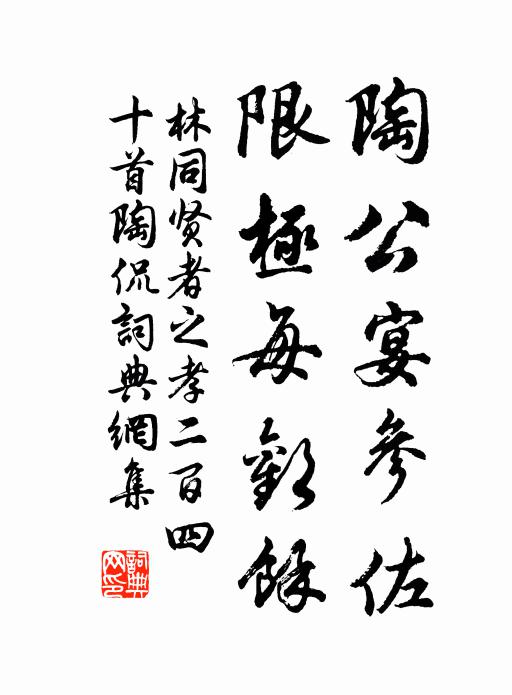 陶公宴參佐
限極每歡餘
林同贤者之孝二百四
十首陶侃詞典網集
詞典网印